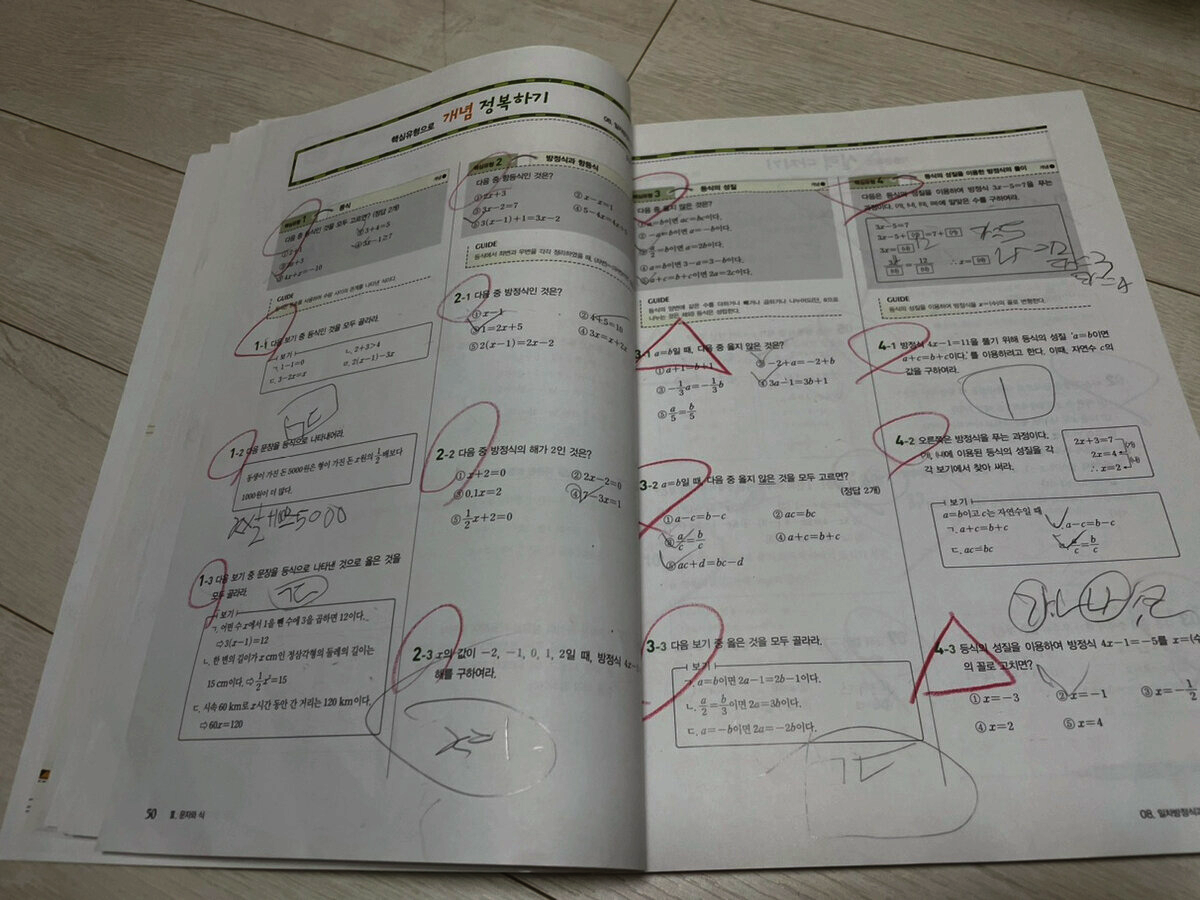 핵심유형으로 개념 정복하기
핵심유형 1 등식
다음 중 등식인 것을 모두 고르면? (정답 2개)
② 3+4=5
④ 3x-1≥7
⑤ 4x+x=-10
GUIDE
1-1 다음 보기 중 등식인 것을 모두 골라라.
보기
ㄱ. 1-1=0
ㄴ. 2+3>4
ㄷ. 3-2x=x
ㄹ. 2(x-1)-3x
ㄱ, ㄷ
1-2 다음 문장을 등식으로 나타내어라.
동생이 가진 돈 5000원은 형이 가진 돈 x원의 1/2배보다
1000원이 더 많다.
1-3 다음 보기 중 문장을 등식으로 나타낸 것으로 옳은 것을
모두 골라라.
ㄱ, ㄷ
보기
ㄱ. 어떤 수 x에서 1을 뺀 수에 3을 곱하면 12이다.
⇨ 3(x-1)=12
ㄴ. 한 변의 길이가 x cm인 정삼각형의 둘레의 길이는
15 cm이다. ⇨ 1/2x²=15
ㄷ. 시속 60 km로 x시간 동안 간 거리는 120 km이다.
⇨ 60x=120
50 Ⅱ. 문자와 식
핵심유형 2 방정식과 항등식
다음 중 항등식인 것은?
① 2x+3
② x-x=1
③ 3x-2=7
④ 5-4x=4x+5
⑤ 3(x-1)+1=3x-2
GUIDE
2-1 다음 중 방정식인 것은?
① x-1
② 4+5=10
③ 1=2x+5
④ 3x=x+2x
⑤ 2(x-1)=2x-2
2-2 다음 중 방정식의 해가 2인 것은?
① x+2=0
② 2x-2=0
③ 0.1x=2
④ 7-3x=1
⑤ 1/2x+2=0
2-3 x의 값이 -2, -1, 0, 1, 2일 때, 방정식 4x-
해를 구하여라.
핵심유형 3 등식의 성질 개념
다음 중 옳지 않은 것은?
① a=b이면 ac=bc이다.
② -a=b이면 a=-b이다.
④ a=b이면 3-a=3-b이다.
⑤ a+c=b+c이면 2a=2c이다.
GUIDE
등식의 양변에 같은 수를 더하거나 빼거나 곱하거나 나누어도(단, 0으로
나누는 것은 제외) 등식은 성립한다.
3-1 a=b일 때, 다음 중 옳지 않은 것은?
① a+1=b+1
② -2+a=-2+b
③ -1/3a=-1/3b
④ 3a-1=3b+1
⑤ a/5=b/5
3-2 a=b일 때, 다음 중 옳지 않은 것을 모두 고르면?
(정답 2개)
① a-c=b-c
② ac=bc
③ a/c=b/c
④ a+c=b+c
⑤ ac+d=bc-d
3-3 다음 보기 중 옳은 것을 모두 골라라.
보기
ㄱ. a=b이면 2a-1=2b-1이다.
ㄴ. a/2=b/3이면 2a=3b이다.
ㄷ. a=-b이면 2a=-2b이다.
ㄱ, ㄷ
핵심유형 4 등식의 성질을 이용한 방정식의 풀이 개념
다음은 등식의 성질을 이용하여 방정식 3x-5=7을 푸는
과정이다. ㈎, ㈏, ㈐, ㈑에 알맞은 수를 구하여라.
3x-5=7
GUIDE
등식의 성질을 이용하여 방정식을 x=(수)의 꼴로 변형한다.
4-1 방정식 4x-1=11을 풀기 위해 등식의 성질 'a=b이면
a+c=b+c이다.'를 이용하려고 한다. 이때, 자연수 c의
값을 구하여라.
1
4-2 오른쪽은 방정식을 푸는 과정이다.
㈎, ㈏에 이용된 등식의 성질을 각
각 보기에서 찾아 써라.
2x+3=7 ㈎
2x=4 ㈏
∴ x=2
보기
a=b이고 c는 자연수일 때
ㄱ. a+c=b+c
a-c=b-c
ㄷ. ac=bc
a/c=b/c
4-3 등식의 성질을 이용하여 방정식 4x-1=-5를 x=(수)
의 꼴로 고치면?
① x=-3
② x=-1
③ x=-1/2
④ x=2
⑤ x=4
08. 일차방정식과